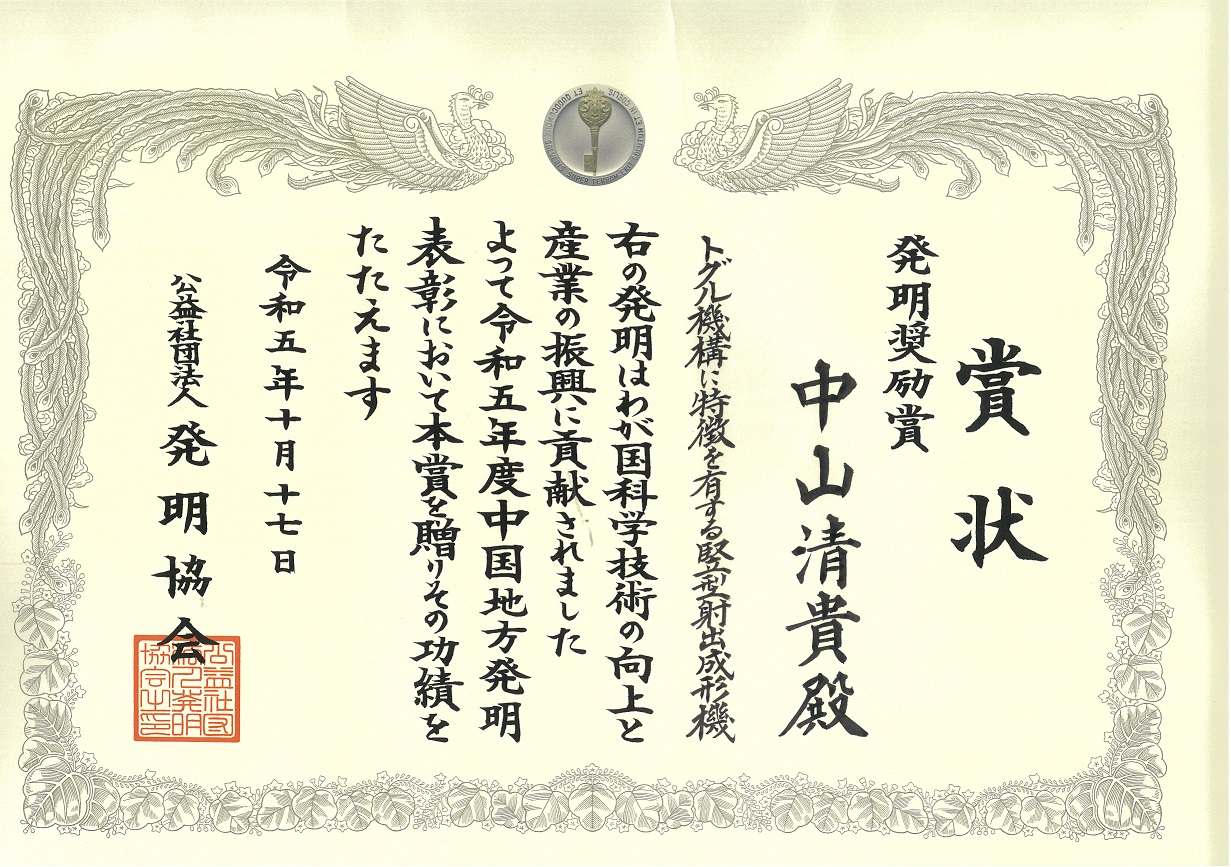 賞状
発明奨励賞
中山清貴殿
トグル機構に特徴を有する竪型射出成形機
右の発明はわが国科学技術の向上と
産業の振興に貢献されました
よって令和五年度中国地方発明
表彰において本賞を贈りその功績を
たたえます
令和五年十月十七日
公益社団法人発明協会
公益社団
法人発明
協会之印